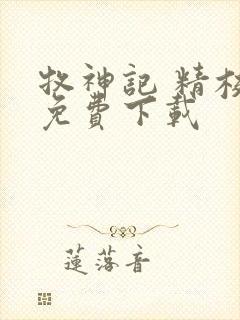 牧神記 精校
免費下載
蓮落音